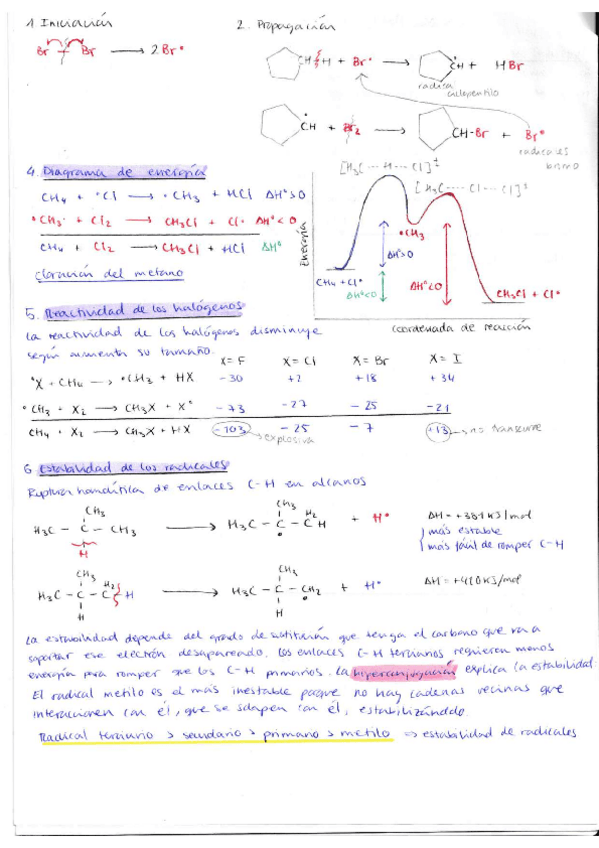 1. Iniciación
2. Propagación
Br — Br ⟶ 2 Br•
CH H + Br• ⟶ •CH + HBr
radical ciclopentilo
•CH + Br2 ⟶ CH-Br + Br•
radicales bromo
4. Diagrama de energía
CH4 + •Cl ⟶ •CH3 + HCl ΔHº>0
•CH3 + Cl2 ⟶ CH3Cl + Cl• ΔHº<0
CH4 + Cl2 ⟶ CH3Cl + HCl ΔHº
cloración del metano
[H3C ··· H ··· Cl]‡
[H3C ··· Cl ··· Cl]‡
Energía
•CH3
ΔHº>0
CH4 + Cl•
ΔHº<0
ΔHº<0
CH3Cl + Cl•
coordenada de reacción
5. Reactividad de los halógenos
La reactividad de los halógenos disminuye
según aumenta su tamaño.
X=F X=Cl X=Br X=I
•X + CH4 ⟶ •CH3 + HX -30 +2 +18 +34
•CH3 + X2 ⟶ CH3X + X• -73 -27 -25 -21
CH4 + X2 ⟶ CH3X + HX -103 → explosiva -25 -7 +13 → no transcurre
6. Estabilidad de los radicales
Ruptura homolítica de enlaces C-H en alcanos
CH3 CH3
H3C - C - CH3 ⟶ H3C - C - CH2 H + H• ΔH = +381 KJ/mol
H
más estable
más fácil de romper C-H
CH3 CH3
H3C - C - C H2 H ⟶ H3C - C - CH2 + H• ΔH = +410 KJ/mol
H H
La estabilidad depende del grado de sustitución que tenga el carbono que va a
soportar ese electrón desapareado. Los enlaces C-H terciarios requieren menos
energía para romper que los C-H primarios. La hiperconjugación explica la estabilidad:
El radical metilo es el más inestable porque no hay cadenas vecinas que
interaccionen con él, que se solapen con él, estabilizándolo.
Radical terciario > secundario > primario > metilo ⇒ estabilidad de radicales